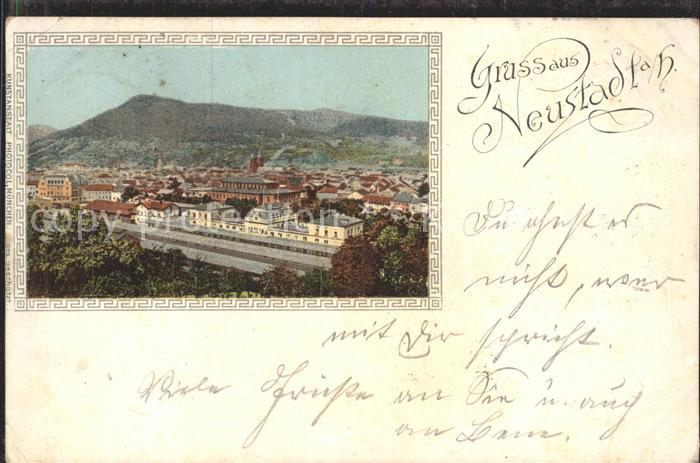 Gruss aus
Neustadt a/H.
KUNSTANSTALT PHOTOCOL, MÜNCHEN ges. geschützt.
© copyright-protected
Du ahnst es
nicht, wer
mit Dir spricht.
Viele Grüße an Sie u. auch
an Bene.